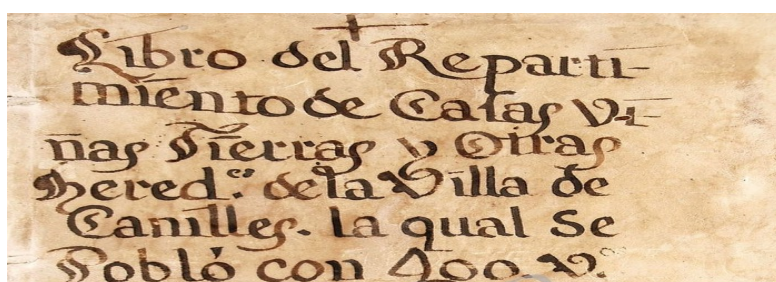 Libro del Reparti-
miento de Casas Vi-
ñas Tierras y Otras
Hered.es de la Villa de
Canilles. la qual Se
Pobló con 400 V.os